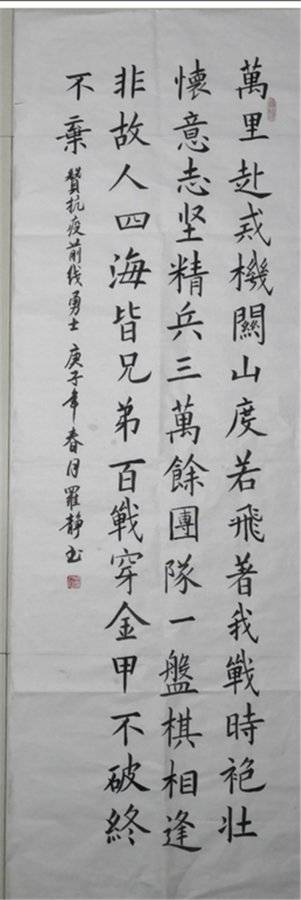 萬里赴戎機關山度若飛著我戰時袍壯
懷意志坚精兵三萬餘團隊一盤棋相逢
非故人四海皆兄弟百戰穿金甲不破終
不棄 贊抗疫前线勇士 庚子年春月羅靜书